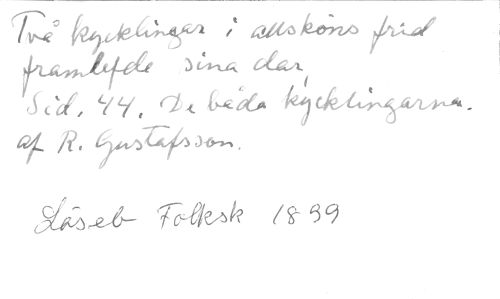 Två kycklingar i allsköns frid
framlefde sina dar,
Sid. 44. De båda kycklingarna.
af R. Gustafsson.
Läseb Folksk 1899